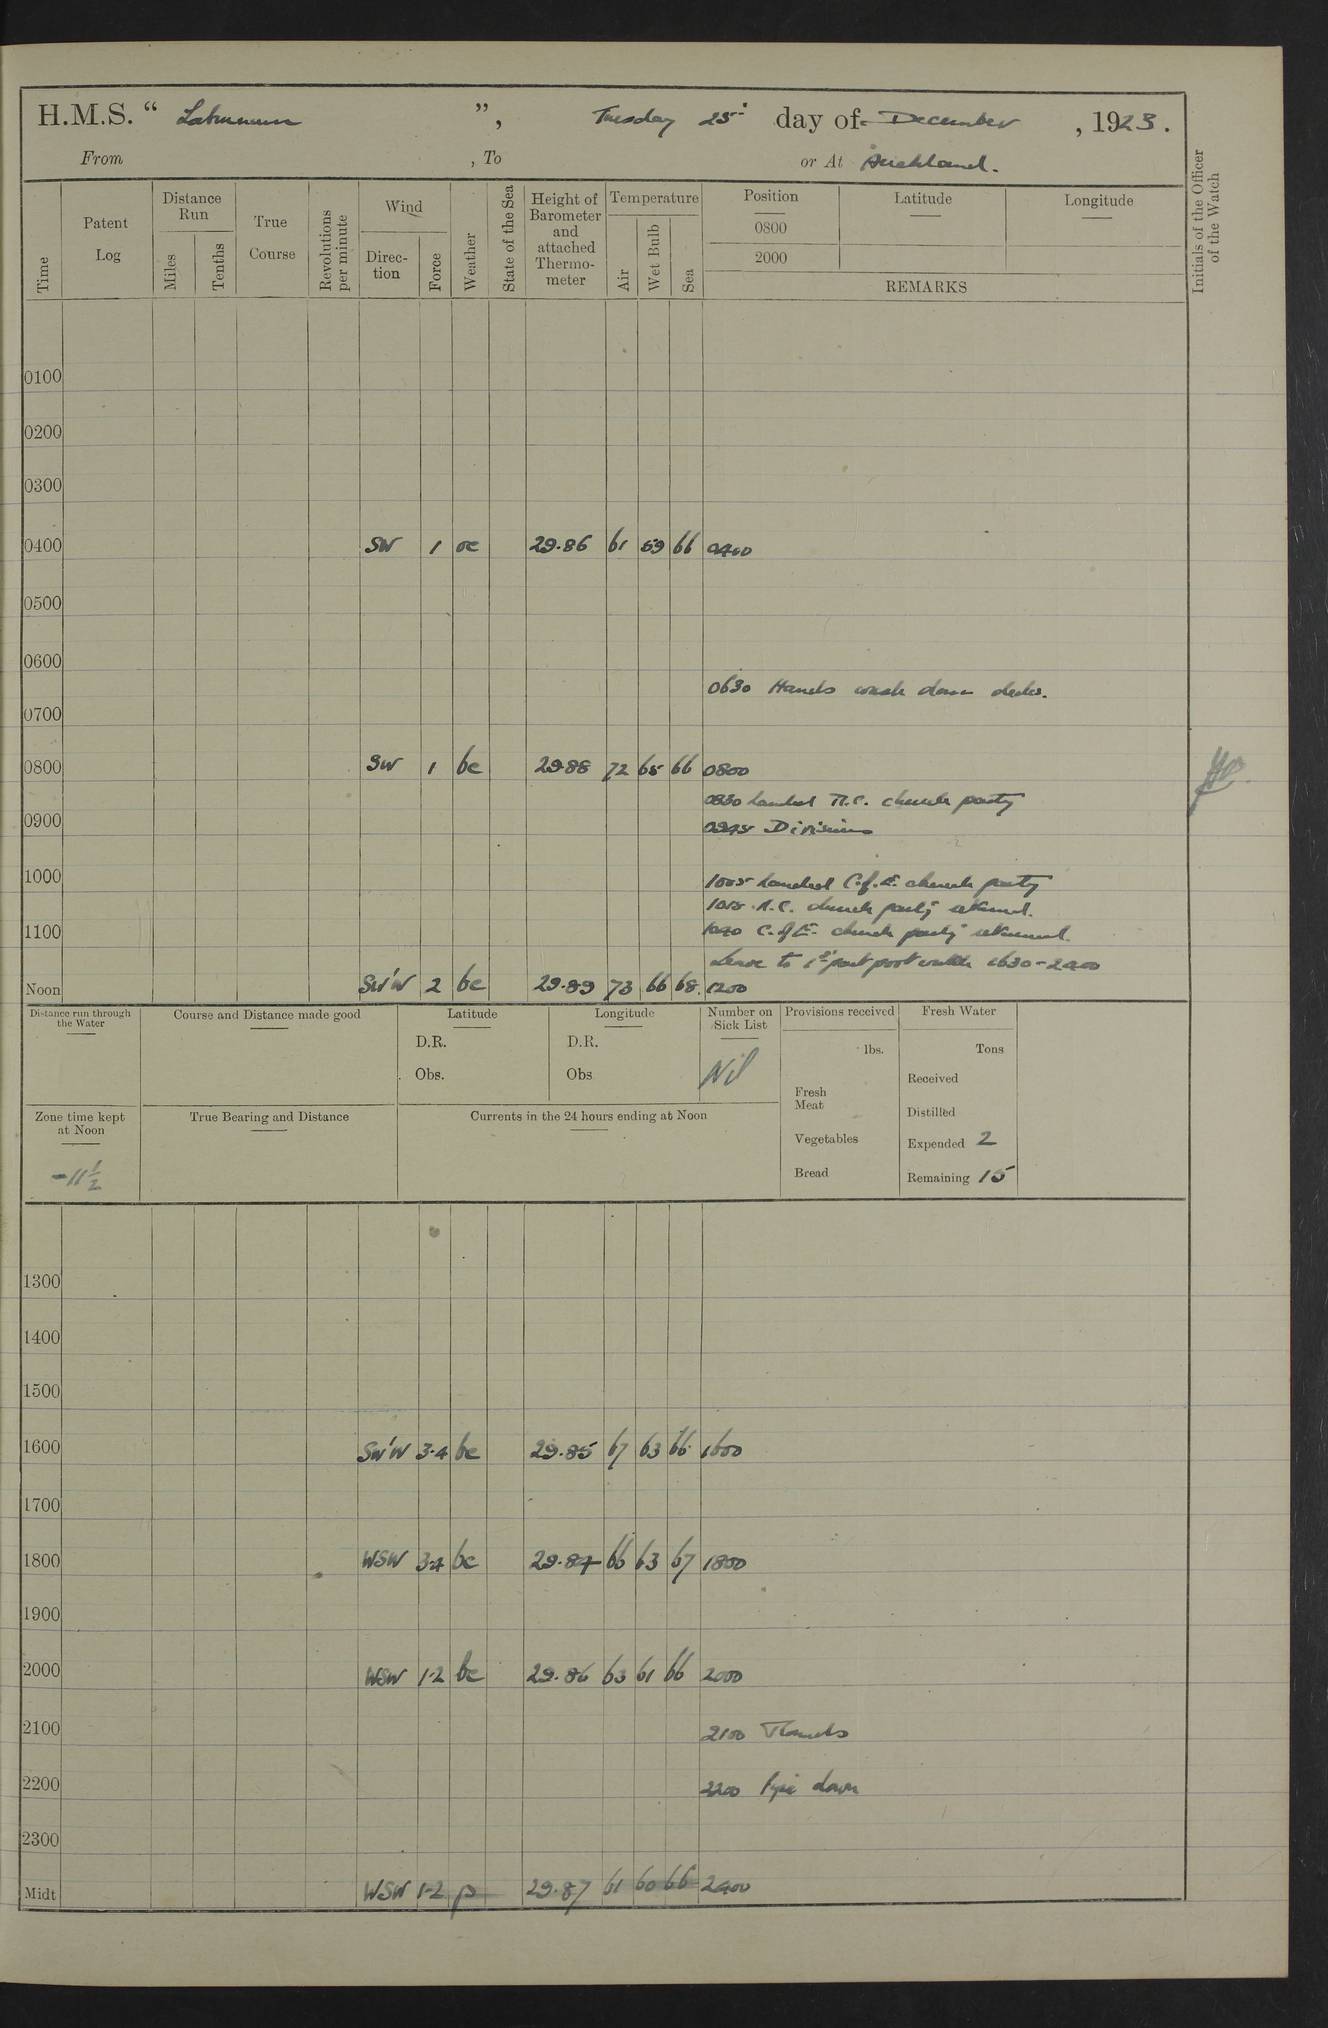 H.M.S. “ Laburnum ”, Tuesday 25th day of December , 1923.
From , To or At Auckland.
Time Patent Log Distance Run Miles Tenths True Course Revolutions per minute Wind Direction Force Weather State of the Sea Height of Barometer and attached Thermometer Temperature Air Wet Bulb Sea Position 0800 2000 Latitude Longitude REMARKS Initials of the Officer of the Watch
0100
0200
0300
0400 SW 1 oc 29.86 61 59 66 0400
0500
0600
0630 Hands wash down decks.
0700
0800 SW 1 bc 29.88 72 65 66 0800
0830 Landed R.C. church party
0900
0945 Divisions
1000 1005 Landed C.of.E. church party
1015 R.C. church party returned.
1100 C. of E. church party returned.
Leave to 1st part port watch 1630-2400
Noon SW'W 2 bc 29.89 73 66 68 1200
Distance run through the Water Course and Distance made good Latitude Longitude Number on Sick List Provisions received Fresh Water
D.R. D.R. lbs. Tons
Obs. Obs Nil Received
Fresh Meat
Zone time kept at Noon True Bearing and Distance Currents in the 24 hours ending at Noon Distilled
Vegetables Expended 2
-11½ Bread Remaining 15
1300
1400
1500
1600 SW'W 3-4 bc 29.85 67 63 66 1600
1700
1800 WSW 3-4 bc 29.84 66 63 67 1800
1900
2000 WSW 1-2 bc 29.86 63 61 66 2000
2100 2100 Rounds
2200 2200 Pipe down
2300
Midt WSW 1-2 p 29.87 61 60 66 2400